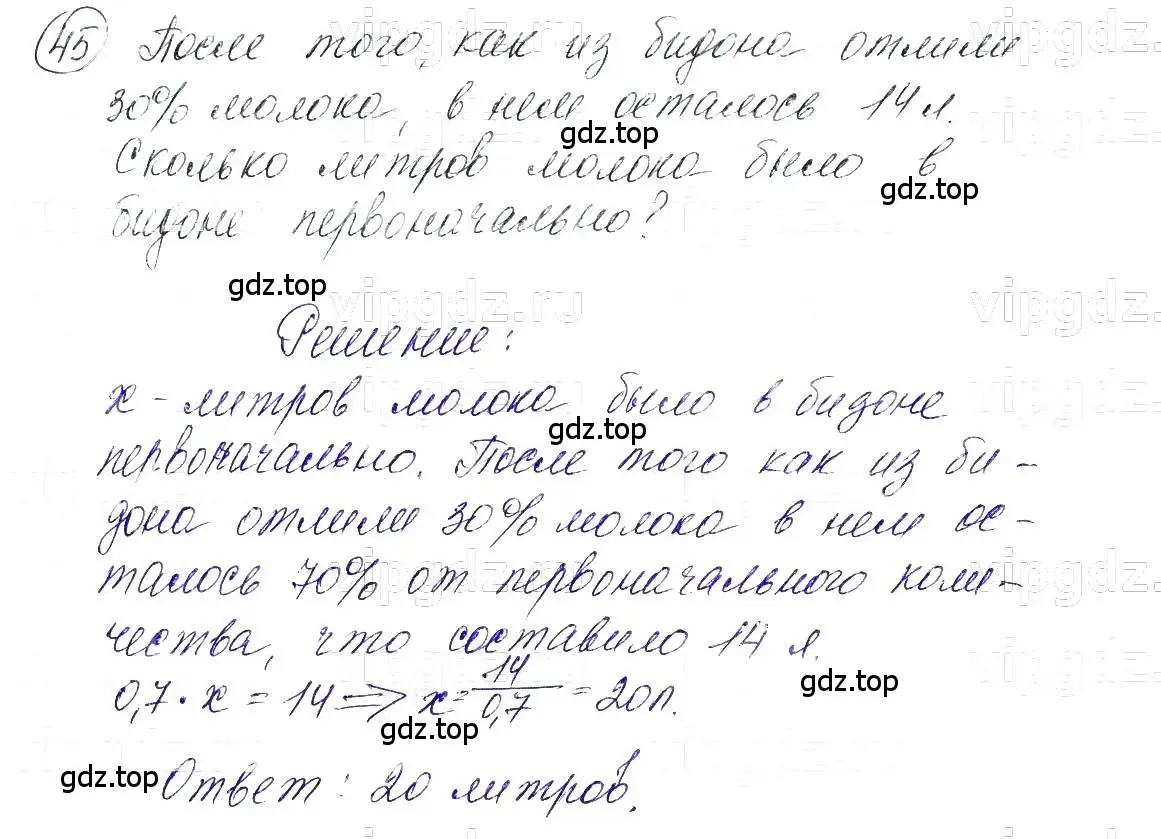 45 После того, как из бидона отлили
30% молока, в нем осталось 14 л.
gdz.top
Сколько литров молока было в
gdz.top
бидоне первоначально?
gdz.top
vipgdz.ru
vipgdz.
Решение:
x - литров молока было в бидоне
gdz.top
первоначально. После того как из би-
дона отлили 30% молока в нем ос-
талось 70% от первоначального коли-
чества, что составило 14 л.
gdz.top
0,7 · x = 14 => x = 14/0,7 = 20л.
gdz.top
gdz.top
Ответ: 20 литров.